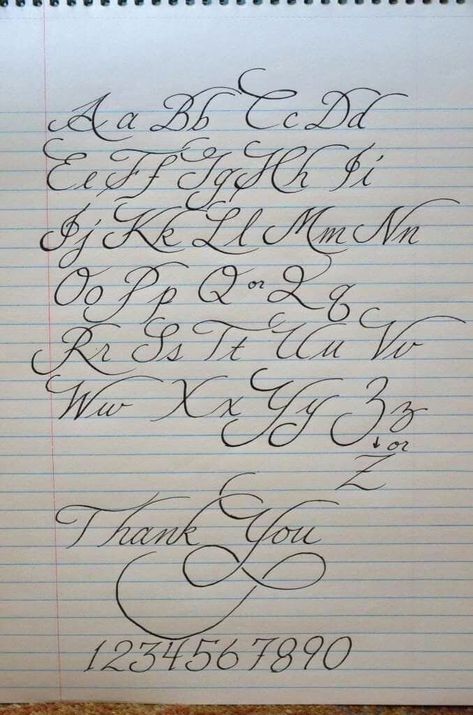 Aa Bb Cc Dd
Ee Ff Gg Hh Ii
Jj Kk Ll Mm Nn
Oo Pp Q or Q q
Rr Ss Tt Uu Vv
Ww Xx Yy Zz
↓ or
Z
Thank You
1234567890